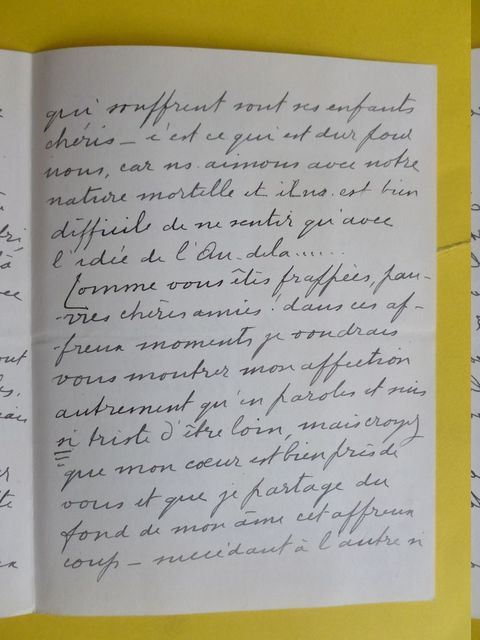 qui souffrent sont ses enfants
chéris – c'est ce qui est dur pour
nous, car ns. aimons avec notre
nature mortelle et il ns. est bien
difficile de ne sentir qu'avec
l'idée de l'Au-delà......
Comme vous êtes frappées, pau-
vres chères amies! dans ces af-
freux moments je voudrais
vous montrer mon affection
autrement qu'en paroles et suis
si triste d'être loin, mais croyez
que mon cœur est bien près de
vous et que je partage du
fond de mon âme cet affreux
coup – succédant à l'autre si